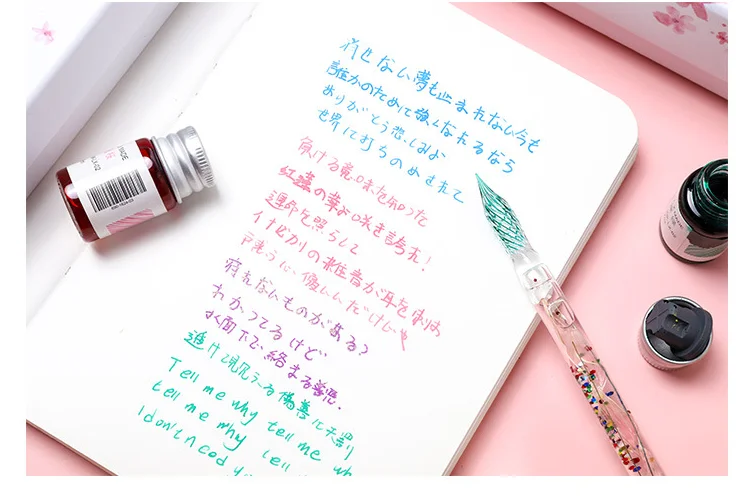 消せない夢も止まれない今も
誰かのために強くなれるなら
ありがとう悲しみよ
世界に打ちのめされて
負ける意味を知った
紅蓮の華よ咲き誇れ!
運命を照らして
イナビカリの雑音が耳を刺す
戸惑う心 優しいだけじゃ
守れないものがある?
わかってるけど
水面下で絡まる善悪.
透けて見える偽善に天罰
Tell me why tell me wh
tell me why tell me
I don't need